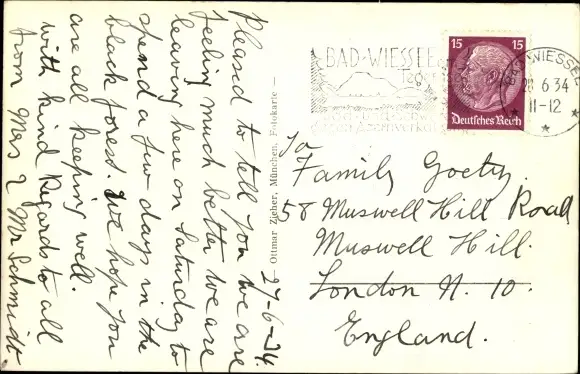 27-6-34.
Pleased to tell you we are
feeling much better we are
leaving here on Saturday to
spend a few days in the
black forest. We hope you
are all keeping well.
with kind Regards to all
from Mrs & Mr Schmidt
Ottmar Zieher, München, Fotokarte
BAD-WIESSEE
15 15
Deutsches Reich
BAD WIESSEE
28 6 34
11-12
To
Family Goetz
58 Muswell Hill Road
Muswell Hill.
London N. 10.
England.